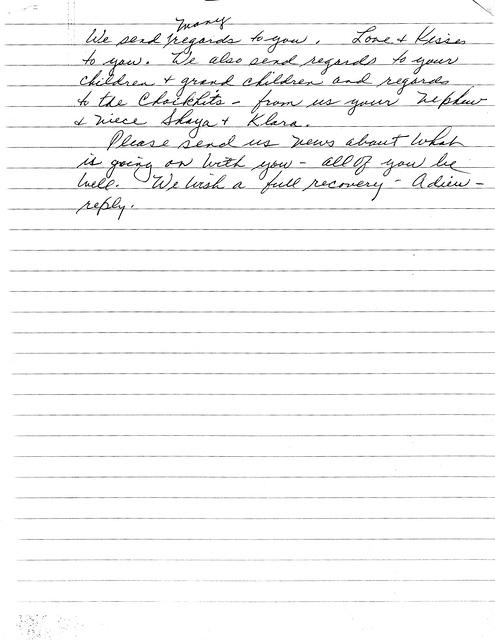 many
We send regards to you. Love + Kisses
to you. We also send regards to your
children + grand children and regards
to the Chaikhits - from us your nephew
+ niece Shaya + Klara.
Please send us news about what
is going on with you - all of you be
well. We wish a full recovery - Adieu -
reply.